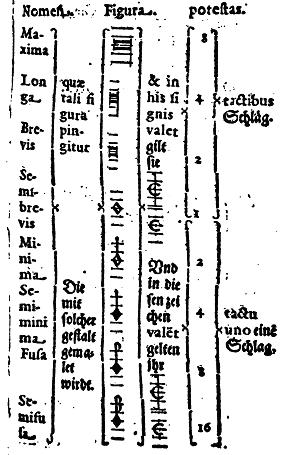 Nomen. Figura. potestas.
Ma-
xima
Lon
ga
Bre-
vis
Se-
mi-
bre-
vis
Mi-
ni-
ma
Se-
mi mini
ma
Fusa
Se-
mifu
sa
quæ
tali fi
gura
pin-
gitur
Die
mit
solcher
gestalt
gema-
let
wirdt.
& in
his si
gnis
valet
gilt
sie
Und
in die
sen zei
chen
valēt
gelten
ihr
8
4
2
1
2
4
8
16
tactibus
Schläg.
tactu
uno einē
Schlag.